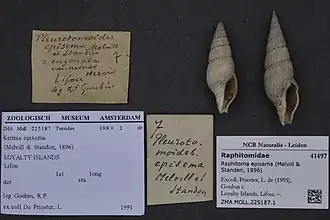 Pleurotomoides
episema Melvill
et Standen
Hervier
Lifou
leg R.P. Goubin
7
ZOOLOGISCH MUSEUM AMSTERDAM
ZMA Moll. 225187 Turridae 2 dr
Kermia episema
(Melvill & Standen, 1896)
LOYALTY ISLANDS
Lifou
lat long
dat sta
leg. Goubin, R.P.
ex coll De Priester, L. 1991
7
Pleuroto-
moides
episema
Melvill et
Standen
NCB Naturalis - Leiden
Raphitomidae 41497
Raphitoma episema (Melvill &
Standen, 1896)
Excoll. Priester, L. de (1995),
Goubin c.
Loyalty Islands, Lifou; --.
ZMA.MOLL.225187.1